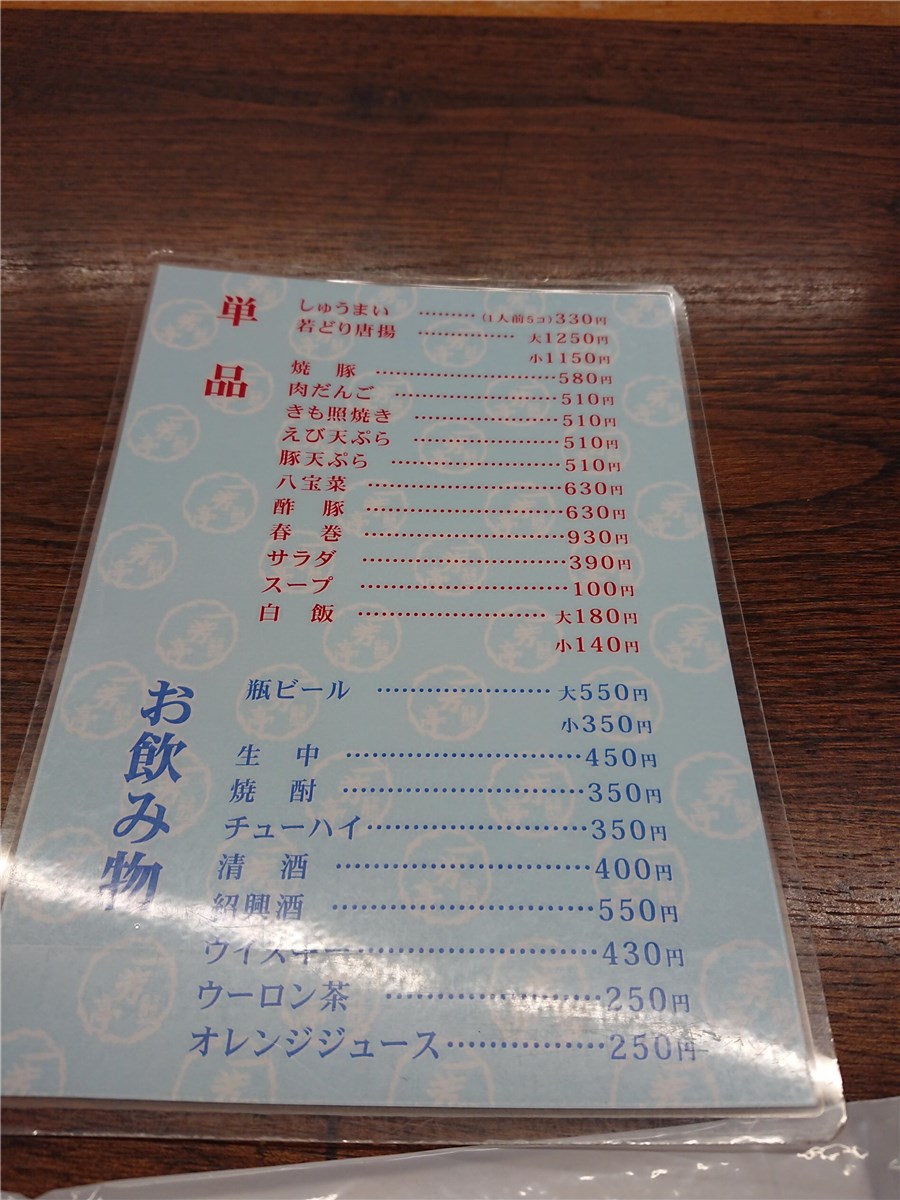 単品
しゅうまい ………(1人前5コ)330円
若どり唐揚 ……………大1250円
小1150円
焼豚 …………………………580円
肉だんご ……………………510円
きも照焼き …………………510円
えび天ぷら …………………510円
豚天ぷら ……………………510円
八宝菜 ………………………630円
酢豚 …………………………630円
春巻 …………………………930円
サラダ ………………………390円
スープ ………………………100円
白飯 ……………………大180円
小140円
お飲み物
瓶ビール …………………大550円
小350円
生中 …………………………450円
焼酎 …………………………350円
チューハイ……………………350円
清酒 …………………………400円
紹興酒 ………………………550円
ウイスキー……………………430円
ウーロン茶 …………………250円
オレンジジュース……………250円